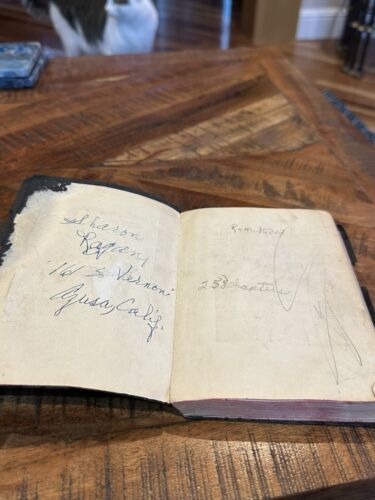 Sharon
Ragan
161 S. Vernon
Azusa, Calif.
258 chapters